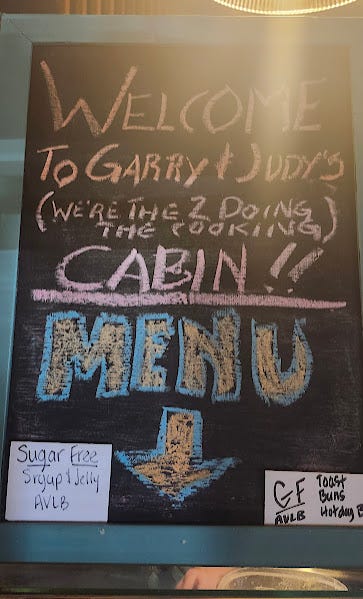 WELCOME
TO GARRY & JUDY'S
(WE'RE THE 2 DOING
THE COOKING)
CABIN!!
MENU
Sugar Free
Sryup & Jelly
AVLB
GF
AVLB
Toast
Buns
Hotdog B